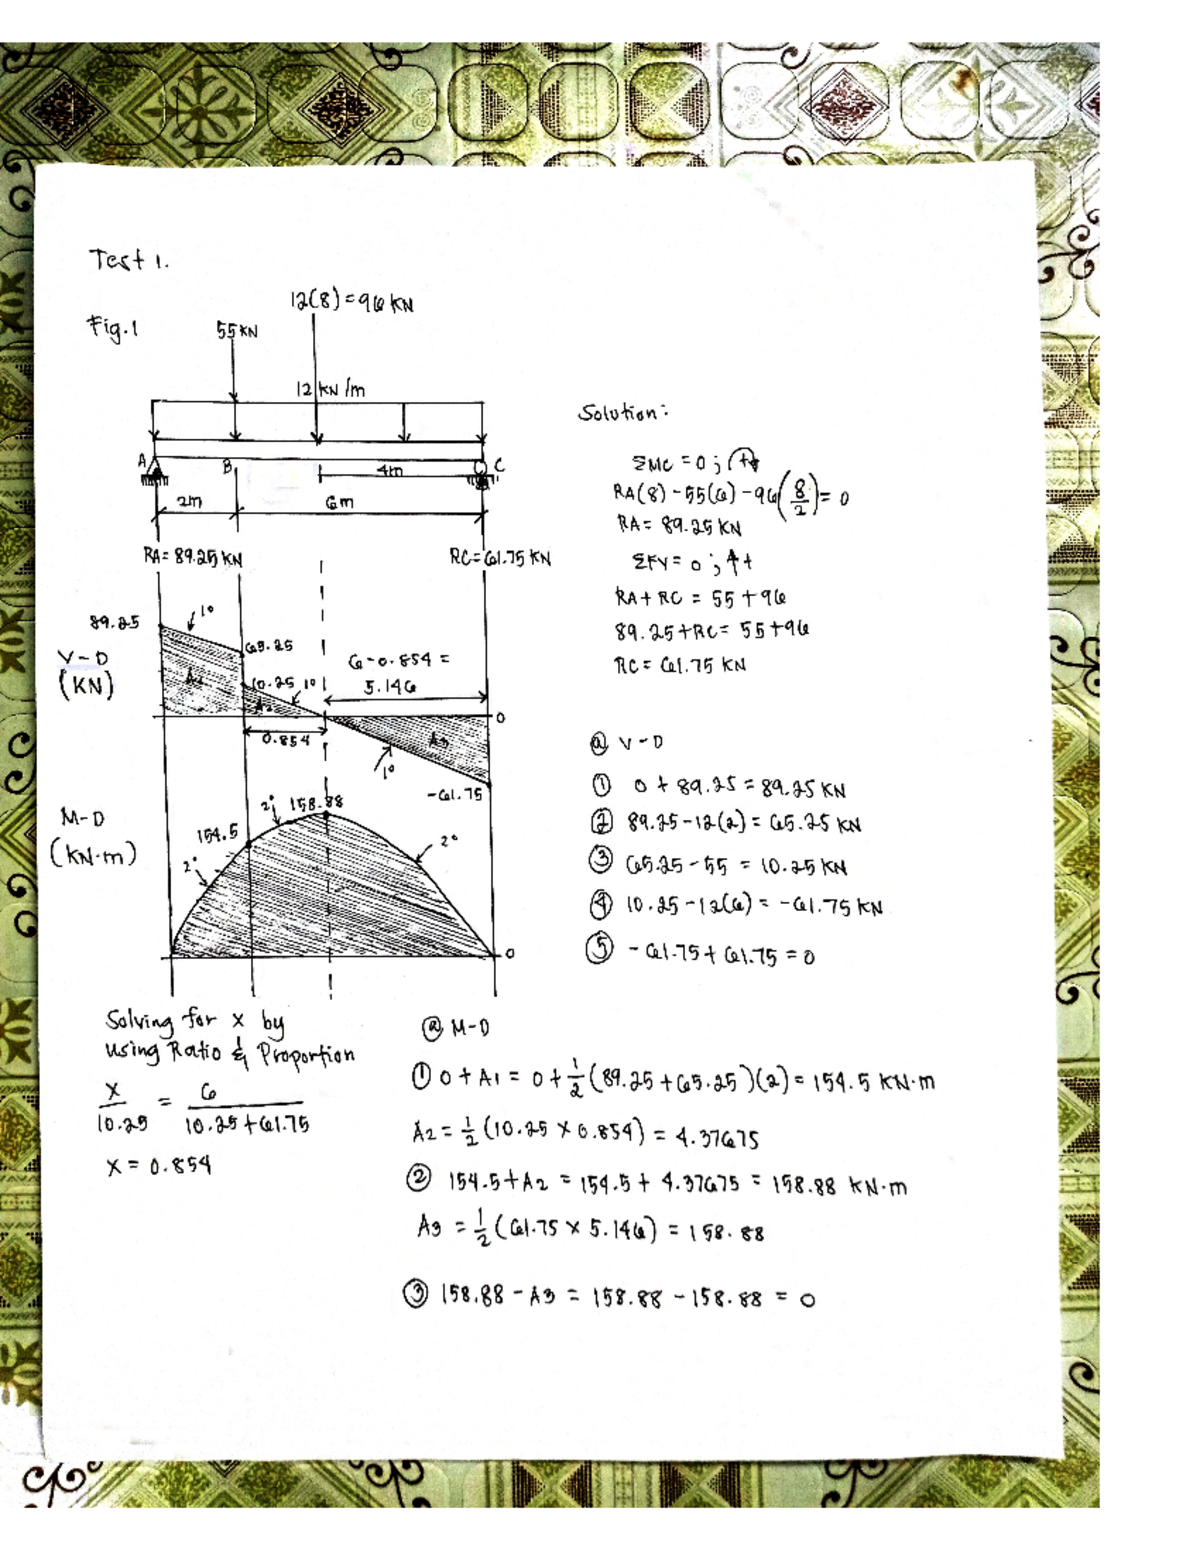 Test 1.
Fig. 1
12(8) = 96 KN
55 KN
12 KN/m
A
B
C
4m
2m
6m
RA = 89.25 KN
RC = 61.75 KN
89.25
1°
65.25
V-D
(KN)
A1
10.25
1°
A2
6 - 0.854 =
5.146
0
0.854
A3
1°
-61.75
M-D
(KN·m)
154.5
2°
158.88
2°
2°
0
Solving for x by
using Ratio & Proportion
x/10.25 = 6/10.25+61.75
x = 0.854
Solution:
ΣMC = 0 ; +
RA(8) - 55(6) - 96(8/2) = 0
RA = 89.25 KN
ΣFY = 0 ; ↑+
RA + RC = 55 + 96
89.25 + RC = 55 + 96
RC = 61.75 KN
@ V-D
① 0 + 89.25 = 89.25 KN
② 89.25 - 12(2) = 65.25 KN
③ 65.25 - 55 = 10.25 KN
④ 10.25 - 12(6) = -61.75 KN
⑤ -61.75 + 61.75 = 0
@ M-D
① 0 + A1 = 0 + 1/2 (89.25 + 65.25)(2) = 154.5 KN·m
A2 = 1/2 (10.25 x 0.854) = 4.37675
② 154.5 + A2 = 154.5 + 4.37675 = 158.88 KN·m
A3 = 1/2 (61.75 x 5.146) = 158.88
③ 158.88 - A3 = 158.88 - 158.88 = 0